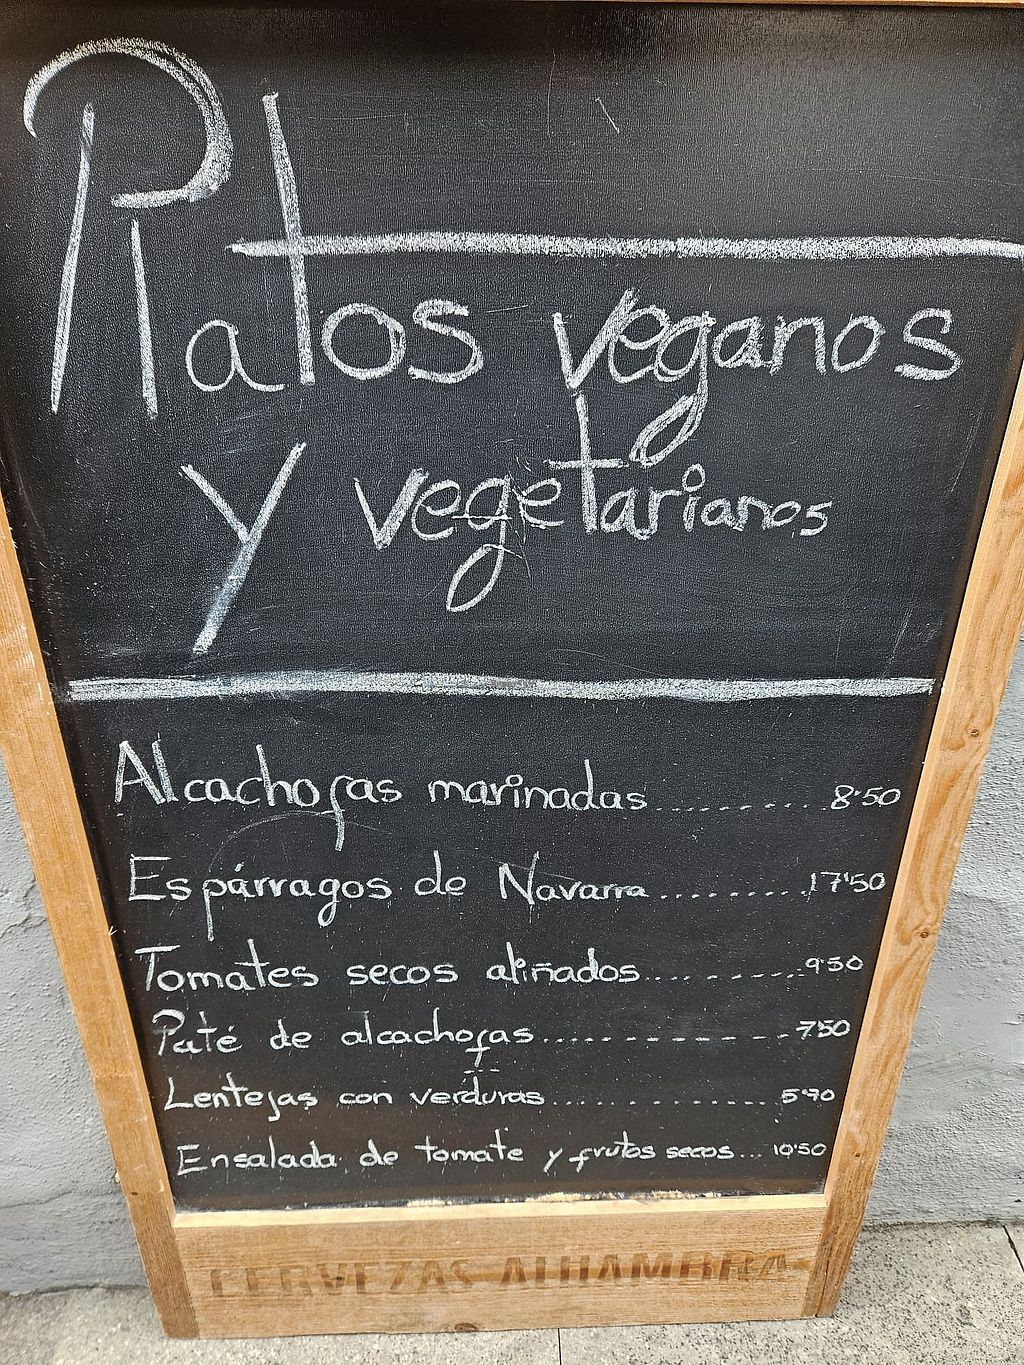 Platos veganos
y vegetarianos
Alcachofas marinadas.......... 8'50
Espárragos de Navarra......... 17'50
Tomates secos aliñados........... 9'50
Paté de alcachofas............... 7'50
Lentejas con verduras............... 5'90
Ensalada de tomate y frutos secos... 10'50
CERVEZAS ALHAMBRA